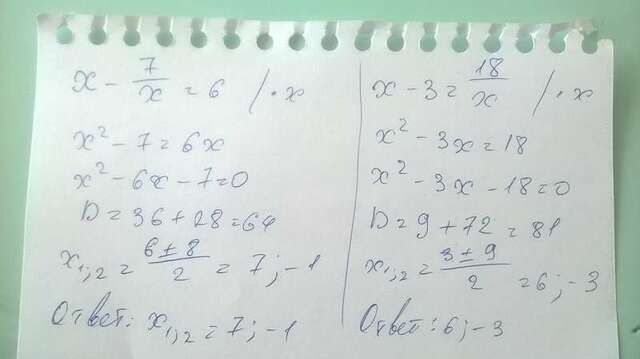 x - 7/x = 6 / · x
x² - 7 = 6x
x² - 6x - 7 = 0
D = 36 + 28 = 64
x₁;₂ = (6 ± 8)/2 = 7; -1
Ответ: x₁;₂ = 7; -1
x - 3 = 18/x / · x
x² - 3x = 18
x² - 3x - 18 = 0
D = 9 + 72 = 81
x₁;₂ = (3 ± 9)/2 = 6; -3
Ответ: 6; -3